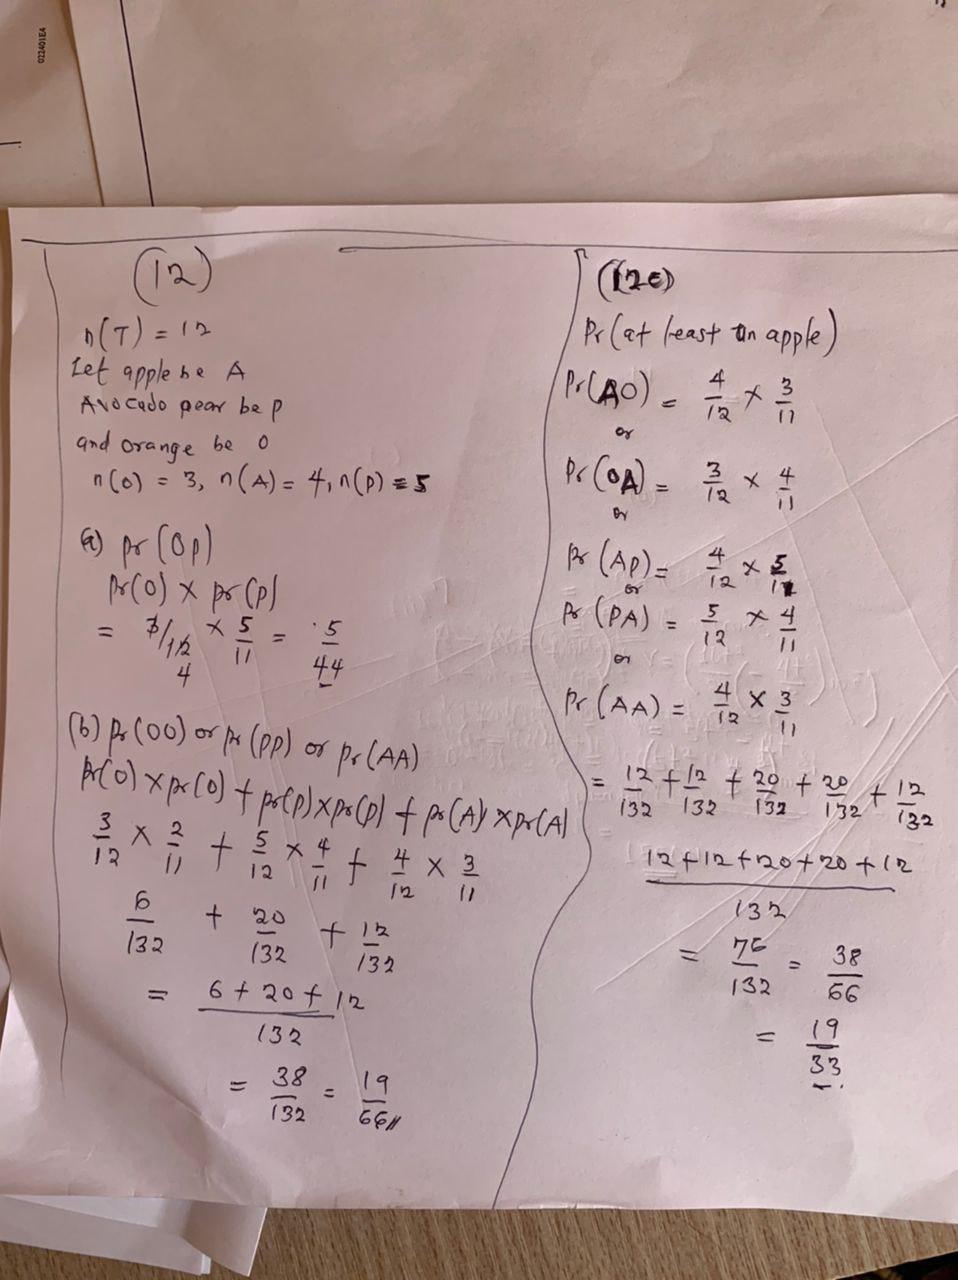 022401E4
(12)
n(T) = 12
Let apple be A
Avocado pear be p
and orange be O
n(O) = 3, n(A) = 4, n(p) = 5
(a) pr(Op)
pr(O) × pr(p)
= 3/12 × 5/11 = 5/44
4
(b) pr(OO) or pr(pp) or pr(AA)
pr(O) × pr(O) + pr(p) × pr(p) + pr(A) × pr(A)
3/12 × 2/11 + 5/12 × 4/11 + 4/12 × 3/11
6/132 + 20/132 + 12/132
= 6 + 20 + 12 / 132
= 38/132 = 19/66
(12c)
Pr(at least an apple)
Pr(AO) = 4/12 × 3/11
or
Pr(OA) = 3/12 × 4/11
or
Pr(Ap) = 4/12 × 5/11
or
Pr(PA) = 5/12 × 4/11
or
Pr(AA) = 4/12 × 3/11
= 12/132 + 12/132 + 20/132 + 20/132 + 12/132
12 + 12 + 20 + 20 + 12 / 132
= 76/132 = 38/66
= 19/33